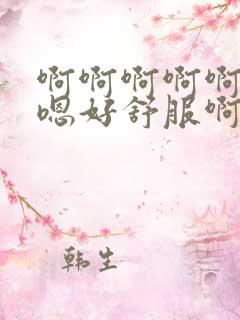 啊啊啊啊啊
嗯好舒服啊
韩生